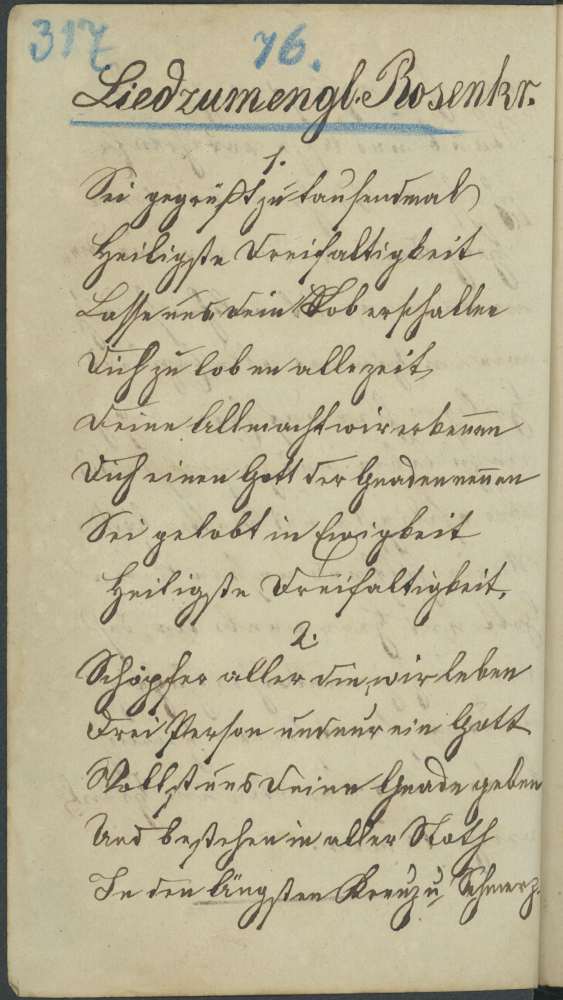 317 76.
Lied zum engl. Rosenkr.
1.
Sei gegrüßt zu tausendmal
Heiligste Dreifaltigkeit
Lasse uns dein Lob erschallen
Dich zu loben allezeit,
Deine Allmacht wir erkennen
Dich einen Gott der Gnaden nennen
Sei gelobt in Ewigkeit
Heiligste Dreifaltigkeit.
2.
Schöpfer aller die wir leben
Drei Person und nur ein Gott
Wollst uns deine Gnade geben
Und bestehen in aller Noth
In den Ängsten Kreuz u. Schmerz.